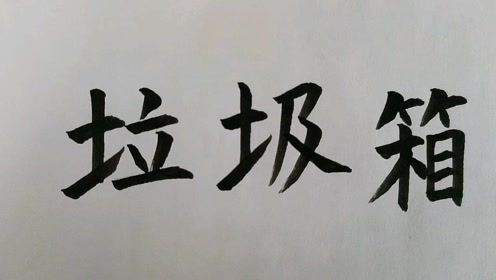 垃圾箱